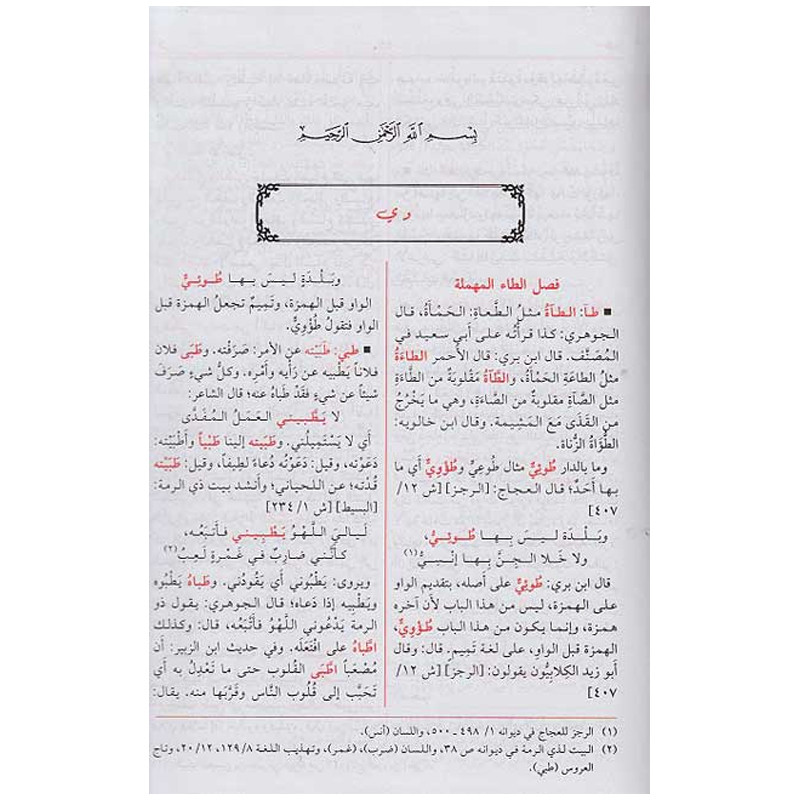 بِسْمِ اللَّهِ الرَّحْمَنِ الرَّحِيمِ
و ي
فصل الطاء المهملة
■ طـأ: الـطـآةُ مثـلُ الـطَّعـاةِ: الحَمْـأَةُ، قـال
الجوهري: كذا قرأتُه على أَبي سعيد في
المُصَنَّف. قال ابن بري: قال الأَحمر الطاءَةُ
مثلُ الطاعَةِ الحَمْأَةُ، والطَّآةُ مَقْلوبَةٌ من الطَّاءَةِ
مثل الصَّآةِ مقلوبة من الصَّاءَةِ، وهي ما يَخْرُجُ
من القَذَى مَعَ المَشِيمة. وقال ابن خالويه:
الطُّوَآةُ الزُّناة.
وما بالدار طُوئِيٌّ مثال طُوعِيٍّ وطُؤْوِيٌّ أَي ما
بـهـا أَحَدٌ؛ قـال العـجـاج: [الرجـز] [ش ١٢/
٤٠٧]
وبَـلْـدَة لـيـس بـهـا طُـوئِـيُّ،
ولا خَـلا الـجِـنَّ بـهـا إِنْـسِـيُّ(١)
قال ابن بري: طُوئِيٌّ على أَصله، بتقديم الواو
على الهمزة، ليس من هذا الباب لأَن آخره
همزة، وإِنما يكون من هذا الباب طُؤْوِيٌّ،
الهمزة قبل الواو، على لغة تَميم. قال: وقال
أَبو زيد الكِلابِيُّون يقولون: [الرجز] [ش ١٢/
٤٠٧]
وبَـلْـدَةٍ لـيـسَ بـهـا طُـوئِـيُّ
الواو قبل الهمزة، وتَمِيمٌ تجعلُ الهمزة قبل
الواو فتقولُ طُؤْوِيٌّ.
■ طبي: طَبَيْته عن الأَمر: صَرَفْته. وطَبَى فلان
فلاناً يَطْبِيه عن رَأْيه وأَمْرِه. وكلُّ شيءٍ صَرَف
شيئاً عن شيءٍ فقَدْ طَباهُ عنه؛ قال الشاعر:
لا يَـطَّـبِـيـنـي الـعَـمَـلُ الـمُـفَـدَّى
أَي لا يَسْتَمِيلُني. وطَبَيْته إِلينا طَبْياً وأَطْبَيْته:
دَعَوْته، وقيل: دَعَوْتُه دُعاءً لطِيفاً، وقيل: طَبَيْته
قُدْته؛ عن اللحياني؛ وأَنشد بيت ذي الرمة:
[البسيط] [ش ١/ ٢٣٤]
لَـيـالِـيَ الـلَّـهْـوُ يَـطْـبِـيـنـي فـأَتْـبَـعُـه،
كـأَنَّـنـي ضـارِبٌ فـي غَـمْـرةٍ لَـعِـبُ(٢)
ويروى: يَطْبُوني أَي يَقودُني. وطَباهُ يَطْبُوه
ويَطْبِيه إِذا دَعاه؛ قال الجوهري: يقول ذو
الرمة يَدْعُوني اللَّهْوُ فأَتْبَعُه، قال: وكذلك
اطَّباهُ على افْتَعَلَه. وفي حديث ابن الزبير: أَن
مُصْعَباً اطَّبَى القُلوب حتى ما تَعْدِلُ به أَي
تَحَبَّب إِلى قُلُوبِ النَّاس وقَرَّبَها منه. يقال:
(١) الرجز للعجاج في ديوانه ١/ ٤٩٨ ـ ٥٠٠، واللسان (أنس).
(٢) البيت لذي الرمة في ديوانه ص ٣٨، واللسان (ضرب)، (غمر)، وتهذيب اللغة ١٢٩/٨، ٢٠/١٢، وتاج
العروس (طبي).